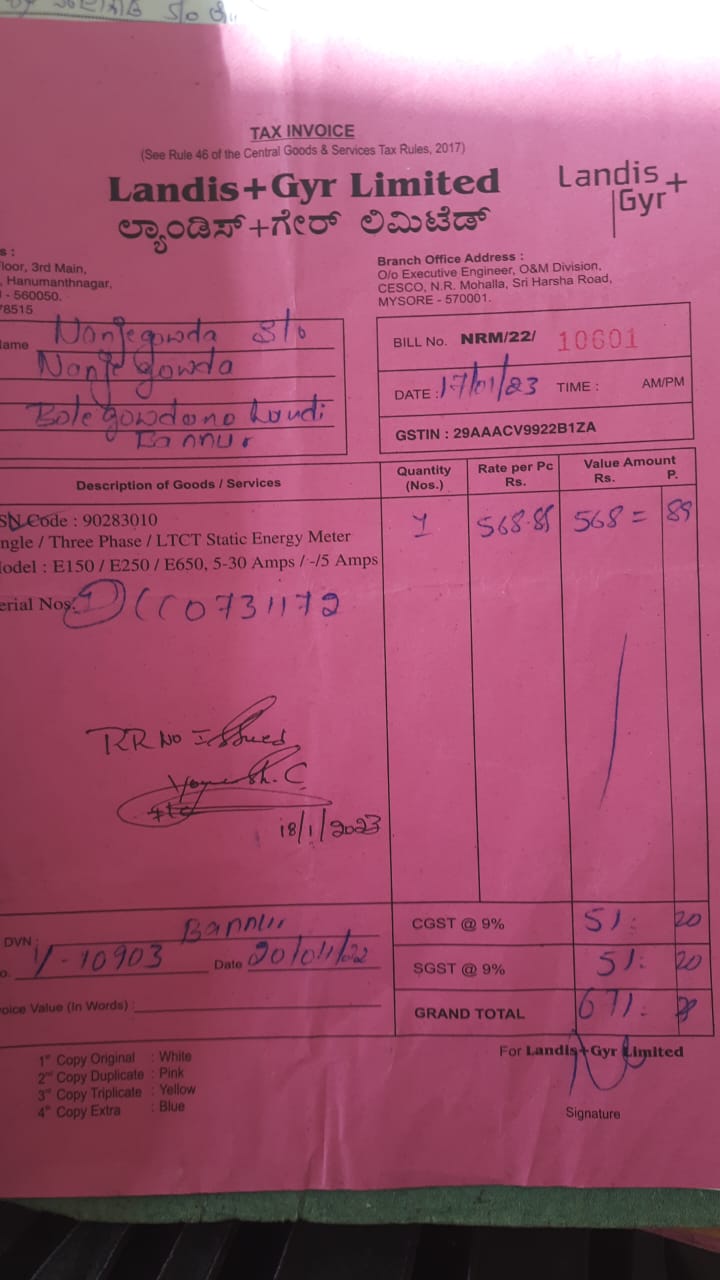 S/o
TAX INVOICE
(See Rule 46 of the Central Goods & Services Tax Rules, 2017)
Landis+Gyr Limited
ಲ್ಯಾಂಡಿಸ್+ಗೇರ್ ಲಿಮಿಟೆಡ್
Landis
Gyr+
s :
loor, 3rd Main,
, Hanumanthnagar,
- 560050.
78515
Branch Office Address :
O/o Executive Engineer, O&M Division,
CESCO, N.R. Mohalla, Sri Harsha Road,
MYSORE - 570001.
lame Nanjegowda S/o
Nanje gowda
Bolegowdana hundi
Bannur
BILL No. NRM/22/ 10601
DATE : 17/01/23 TIME : AM/PM
GSTIN : 29AAACV9922B1ZA
Description of Goods / Services
Quantity (Nos.)
Rate per Pc Rs.
Value Amount Rs. P.
SN Code : 90283010
1 568.89 568 = 89
ngle / Three Phase / LTCT Static Energy Meter
odel : E150 / E250 / E650, 5-30 Amps / -/5 Amps
erial Nos. 1 CC0731172
RR NO Issued
18/1/2023
DVN : Bannur
o. 1/-10903 Date 20/04/22
oice Value (In Words) :
CGST @ 9% 51: 20
SGST @ 9% 51: 20
GRAND TOTAL 671.
1st Copy Original : White
2nd Copy Duplicate : Pink
3rd Copy Triplicate : Yellow
4th Copy Extra : Blue
For Landis+Gyr Limited
Signature